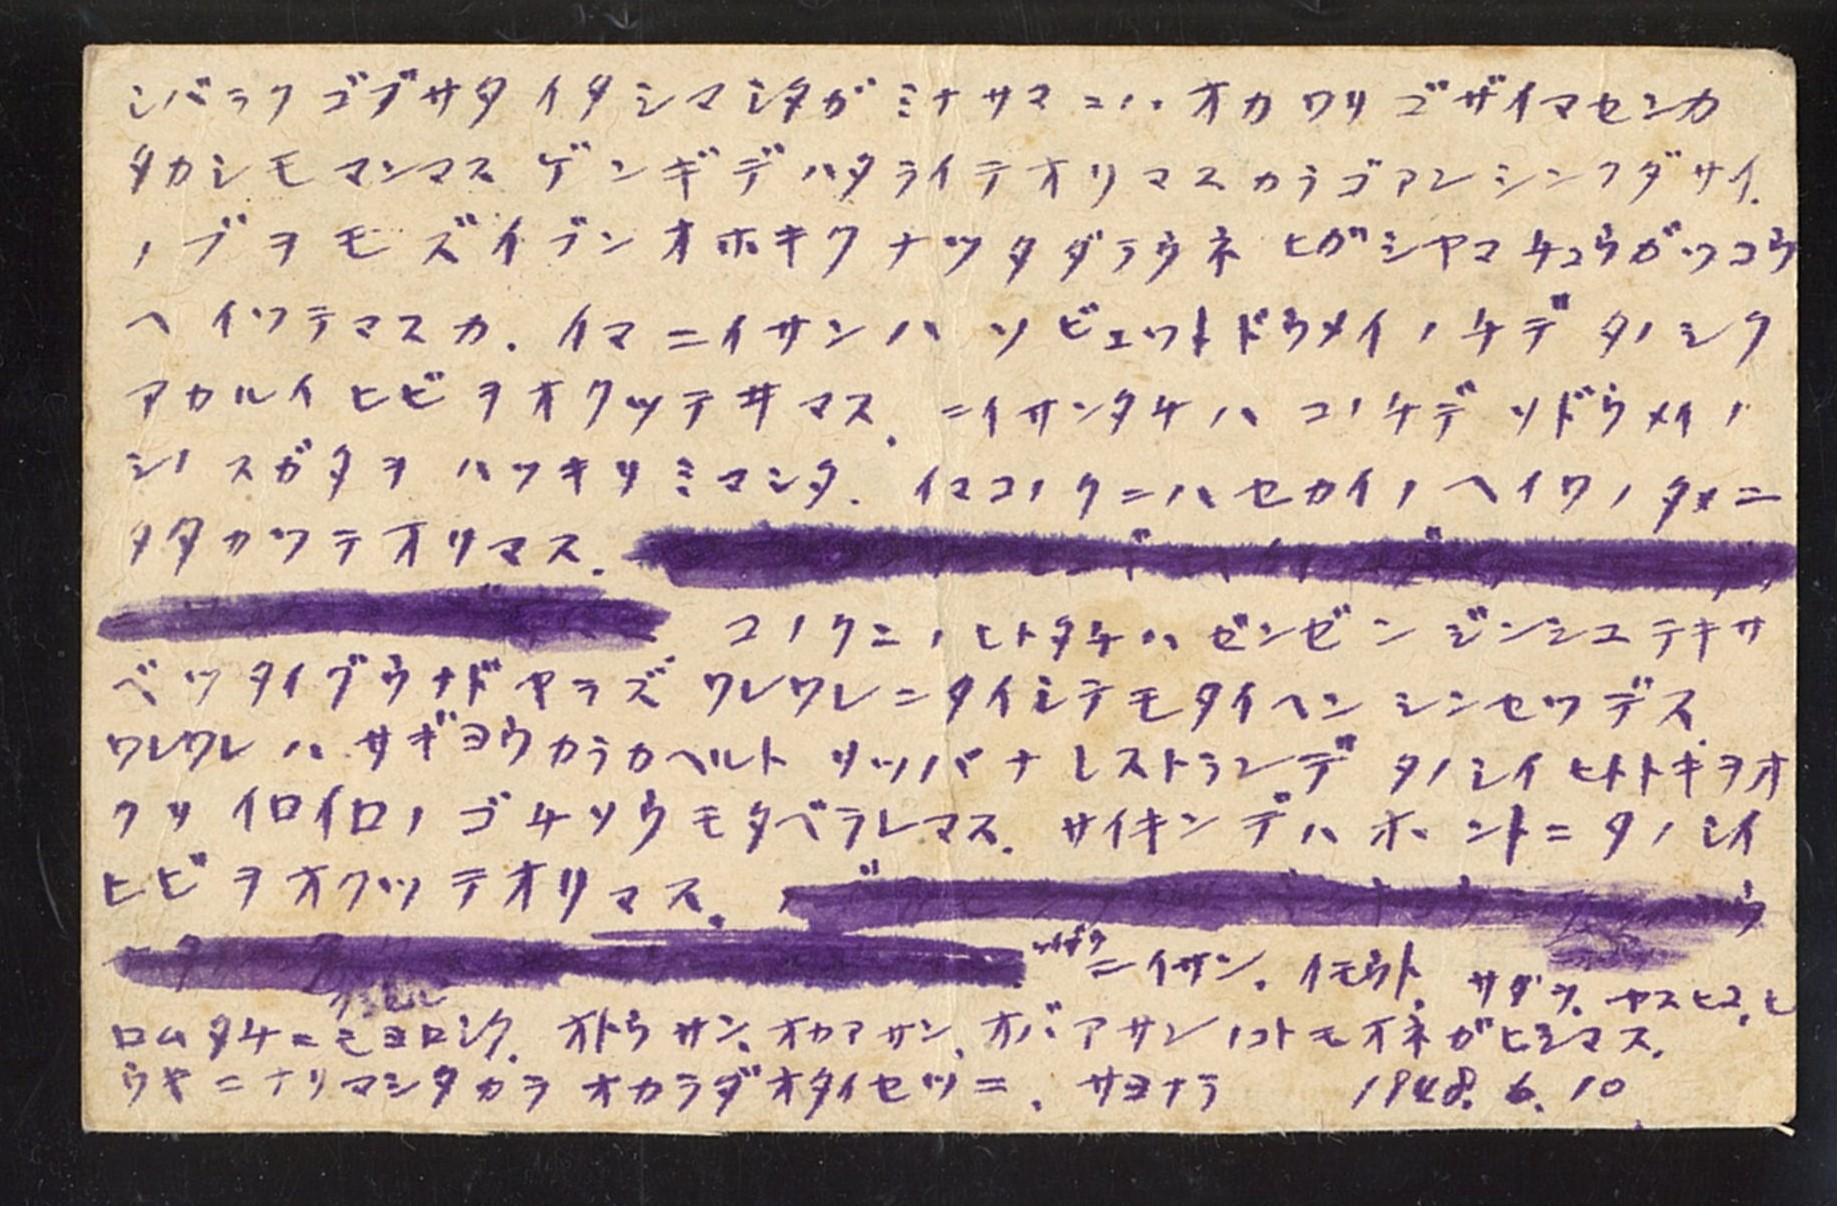 シバラク ゴブサタ イタシマシタガ ミナサマニハ オカワリ ゴザイマセンカ
タカシモ マンマス ゲンギデ ハタライテオリマスカラゴアンシンクダサイ.
ノブヲモ ズイブン オホキク ナツタダラウネ ヒガシヤマ チュウガツコウ
ヘ イツテマスカ. イマ ニイサンハ ソビエツトドウメイノ チデ タノシク
アカルイ ヒビヲオクツテヰマス. ニイサンタチハ コノチデ ソドウメイノ
シノ スガタヲ ハツキリミマシタ. イマコノクニハ セカイノ ヘイワノ タメニ
タタカツテオリマス.
コノクニノ ヒトタチハ ゼンゼン ジンシユテキサ
ベツタイグウナド ヤラズ ワレワレニタイシテモタイヘン シンセツデス.
ワレワレハ サギヨウカラカヘルト リツパナ レストランデ タノシイ ヒトトキヲオ
クリ イロイロノ ゴチソウモタベラレマス. サイキンデハ ホントニ タノシイ
ヒビヲオクツテオリマス.
ニイサン. イモウト. サダヲ. ヤスヒコ. ヒ
ロムタチニモヨロシク. オトウサン、オカアサン、オバアサンノコトモオネガヒシマス.
ウキニナリマシタカラ オカラダオタイセツニ. サヨナラ 1948. 6. 10